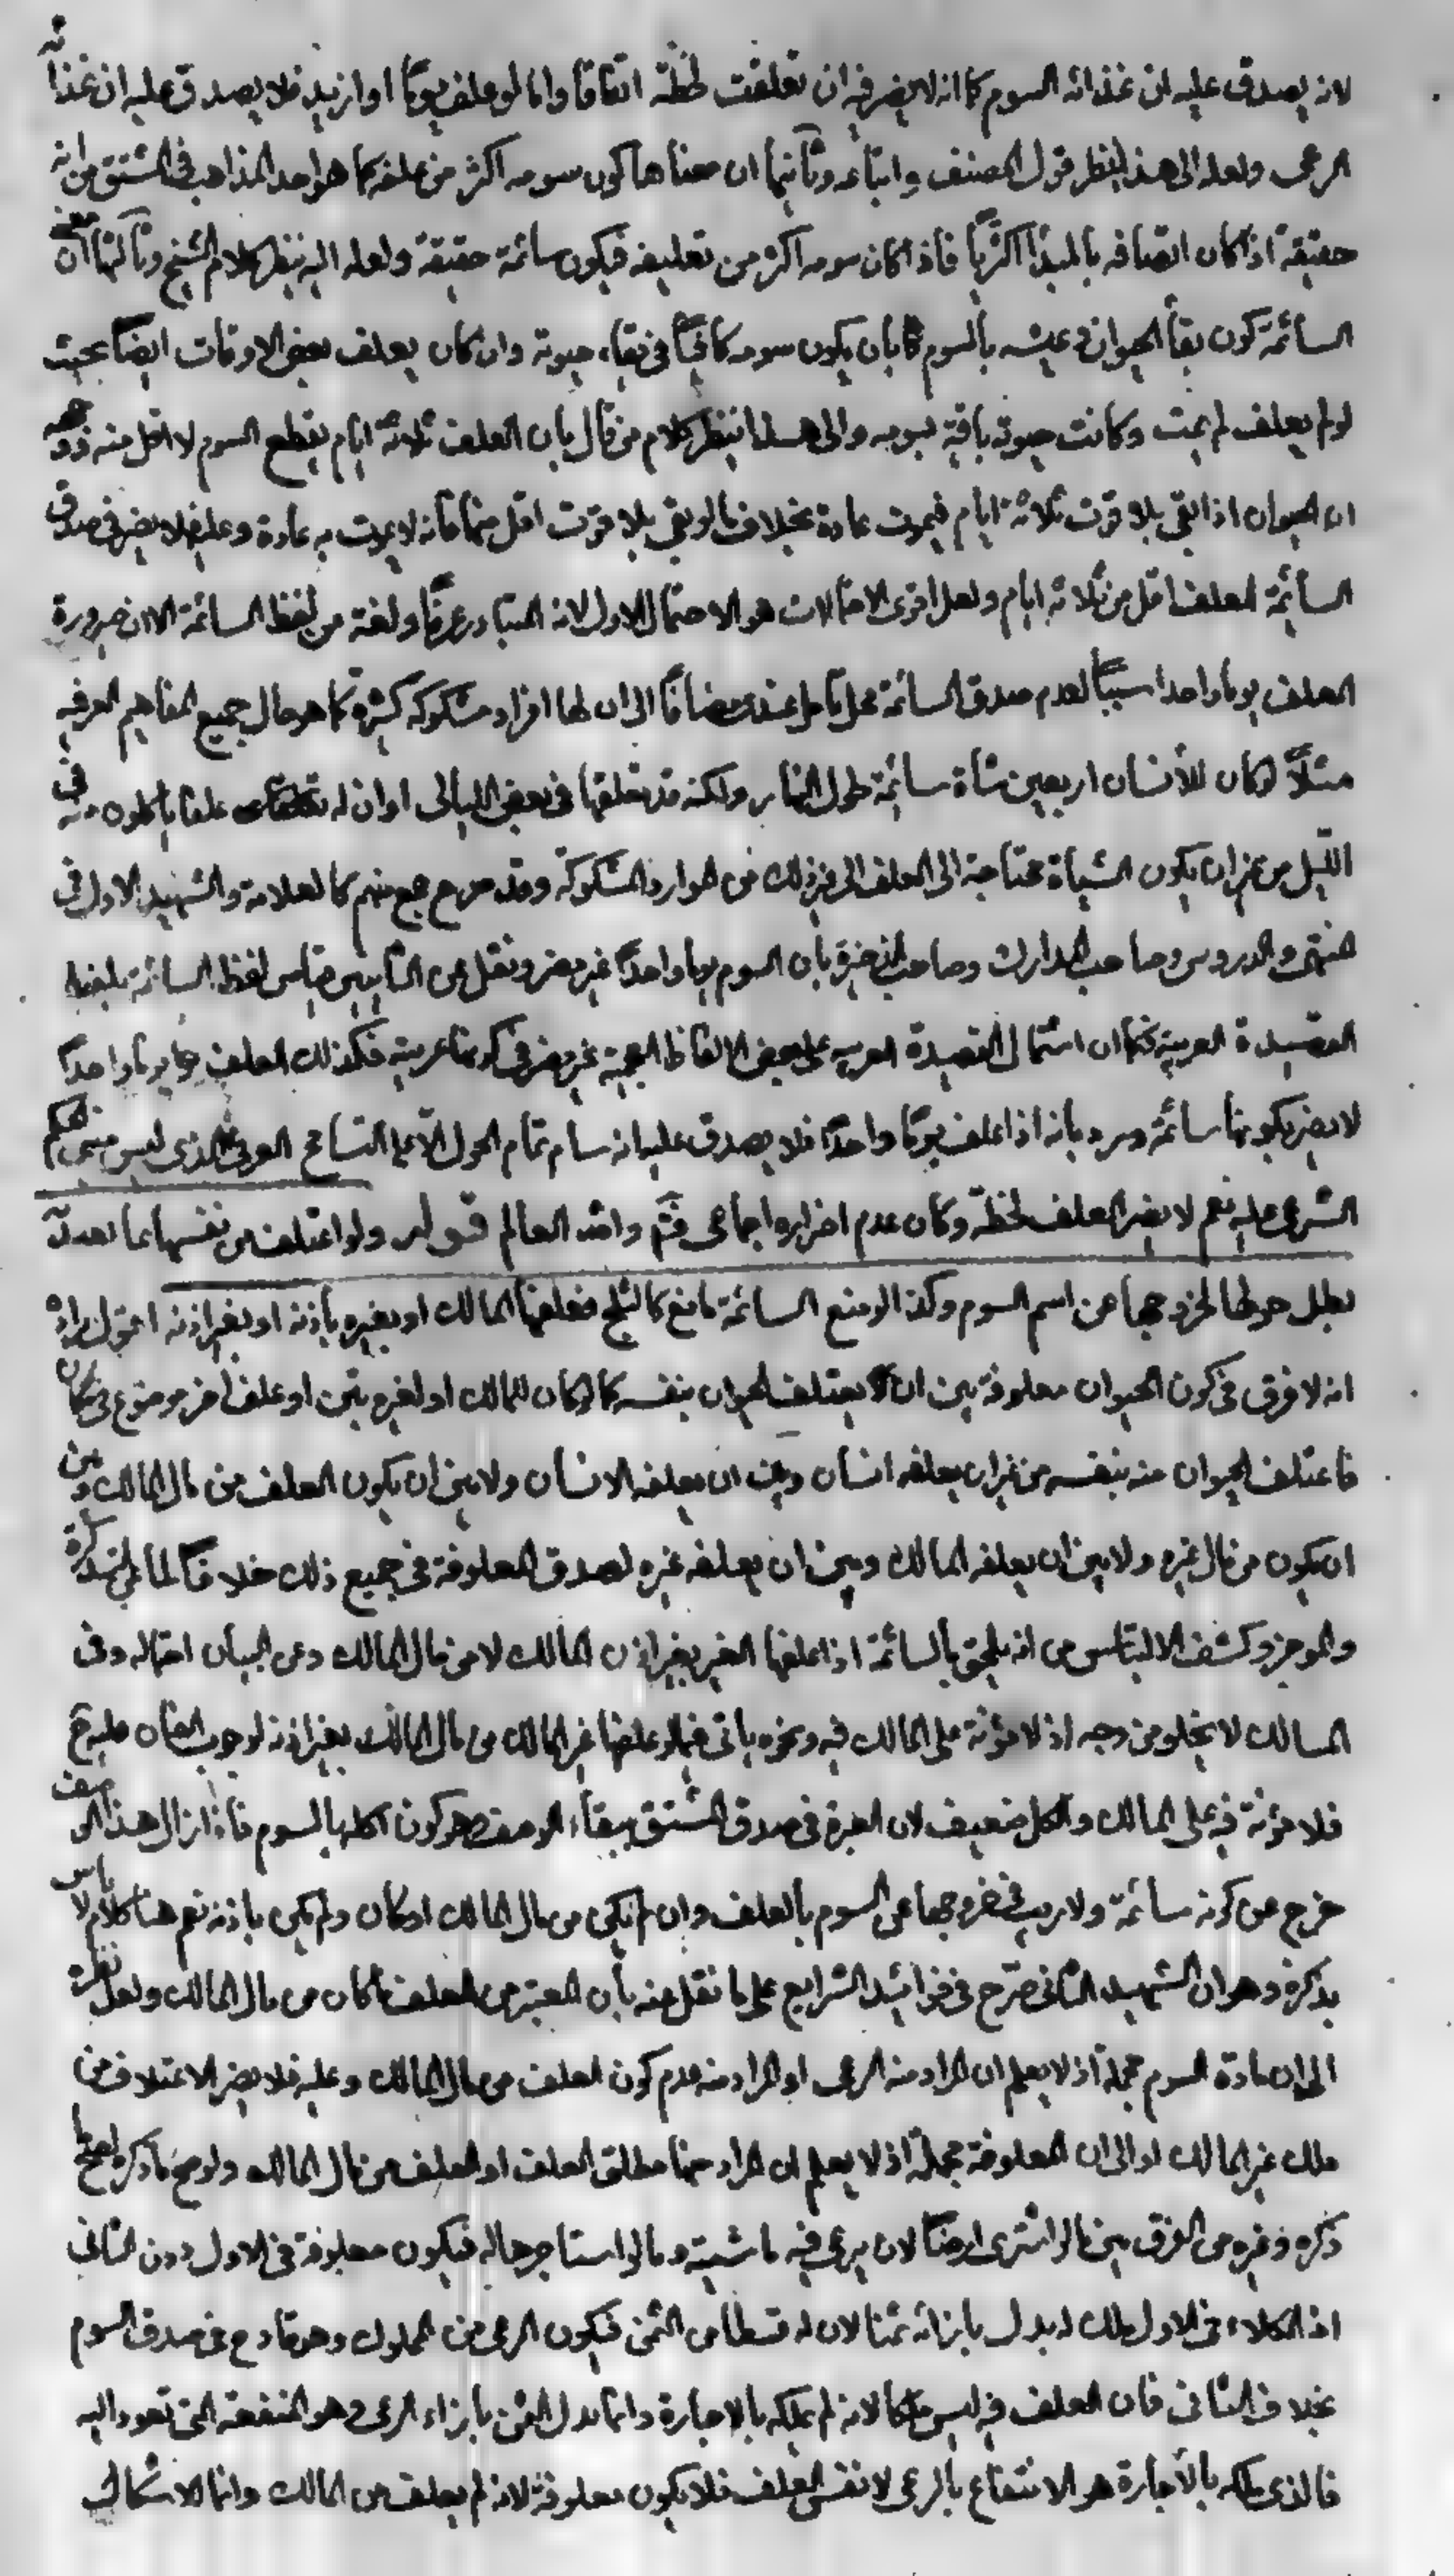 لانه يصدق عليه ان غذائه السوم كما انه لا يضر فيه ان تعلفت لحظة اتفاقا واما لو علف يوما او ازيد فلا يصدق عليه ان غذائه
الرعى ولعله الى هذا ينظر قول المصنف واتباعه وثانيها ان معناها كون سومه اكثر من علفه كما هو احد المذاهب فى المشتق من انه
حقيقة اذا كان اتصافه بالمبدأ اكثريا فاذا كان سومه اكثر من تعليفه فيكون سائمة حقيقة ولعله اليه ينظر كلام الشيخ وثالثها ان معنى
السائمة كون بقاء الحيوان وعيشه بالسوم بان يكون سومه كافيا فى بقاء حيوته وان كان يعلف بعض الاوقات ايضا بحيث
لو لم يعلف لم يمت وكانت حيوته باقية بسومه والى هذا ينظر كلام من قال بان العلف ثلاثة ايام يقطع السوم لا اقل منه ووجهه
ان الحيوان اذا بقى بلا قوت ثلاثة ايام فيموت عادة بخلاف ما لو بقى بلا قوت اقل منها فانه لا يموت به عادة وعليه فلا يضر فى صدق
السائمة العلف اقل من ثلاثة ايام ولعل اقوى الاحتمالات هو الاحتمال الاول لانه المتبادر عرفا ولغة من لفظ السائمة الا ان ضرورة
العلف يوما واحدا سببا لعدم صدق السائمة محل تامل عندى مضافا الى ان لها افراد مشكوكه كثيرة كما هو حال جميع المفاهيم العرفيه
مثلا لو كان للأنسان اربعين شاة سائمة طول النهار ولكنه قد يعلفها فى بعض الليالى او ان له علفا ياكلون منه فى
الليل من غير ان يكون الشياة محتاجة الى العلف الى غير ذلك من الموارد المشكوكة وقد صرح جمع منهم كالعلامة والشهيد الاول فى
المنتهى والدروس وصاحب المدارك وصاحب الذخيرة بان السوم يوما واحدا غير مضر ونقل عن الثانيين قياس لفظ السائمة بلفظ
القصيدة العربية فكما ان اشتمال القصيدة العربيه على بعض الالفاظ العجمية غير مضر فى كونها عربية فكذلك العلف يوما واحدا
لا يضر بكونها سائمة ورد بانه اذا علف يوما واحدا فلا يصدق عليه انه سام تمام الحول الا على التسامح العرفى الذى ليس مبنى الحكم
الشرعى عليه نعم لا يضر العلف لحظة وكان عدم اضراره اجماعى فتم والله العالم قوله ولو اعتلف من نفسها بما يعتد به
بطل حولها لخروجها عن اسم السوم وكذا لو منع السائمة مانع كالثلج فعلفها المالك او بغيره باذنه او بغير اذنه اقول مراده
انه لا فرق فى كون الحيوان معلوفة بين ان يعتلف الحيوان بنفسه كما لو كان للمالك او لغيره تبن او علف اخر موضوع فى مكان
فاعتلف الحيوان منه بنفسه من غير ان يعلفه انسان وبين ان يعلفه الانسان ولا بين ان يكون العلف من مال المالك وبين
ان يكون من مال غيره ولا بين ان يعلفه المالك وبين ان يعلفه غيره لصدق المعلوفة فى جميع ذلك خلافا لما فى التذكرة
والموجز وكشف الالتباس من انه يلحق بالسائمة اذا علفها الغير بغير اذن المالك لا من مال المالك وعن البيان احتماله وفى
المسالك لا يخلو من وجه اذ لا مؤنة على المالك فيه ونحوه ياتى فيما لو علفها غير المالك من مال المالك بغير اذنه لوجوب الضمان عليه ح
فلا مؤنة فيه على المالك والكل ضعيف لان العبرة فى صدق المشتق ببقاء الوصف وهو كون اكلها بالسوم فاذا زال هذا الوصف
خرج عن كونه سائمة ولا ريب فى خروجها عن السوم بالعلف وان لم يكن من مال المالك او كان ولم يكن باذنه نعم هنا كلام لا باس
بذكره وهو ان الشهيد الثانى صرح فى فوائد الشرايع على ما نقل عنه بان المعتبر من العلف ما كان من مال المالك ولعل نظره
الى ان مادة السوم مجملة اذ لا يعلم ان المراد منه الرعى او المراد منه عدم كون العلف من مال المالك وعليه فلا يضر الاعتلاف من
ملك غير المالك او الى ان المعلوفة مجملة اذ لا يعلم ان المراد منها مطلق العلف او العلف من مال المالك ولو صح ما ذكره لصح ما
ذكره وغيره من الفرق بين ما لو اشترى ارضا لان يرعى فيه ماشيته وما لو استاجرها له فيكون معلوفة فى الاول دون الثانى
اذ الكلاء فى الاول ملك له بدل بازائه ثمنا لان له قسطا من الثمن فيكون الرعى من المملوك وهو قادح فى صدق السوم
بخلاف الثانى فان العلف فيه ليس ملكا لانه لم يملكه بالاجارة وانما بدل الثمن بازاء الرعى وهو المنفعة التى تعود اليه
فالذى ملكه بالأجارة هو الانتفاع بالرعى لا نفس العلف فلا يكون معلوفة لانه لم يعلف من المالك وانما الاشكال